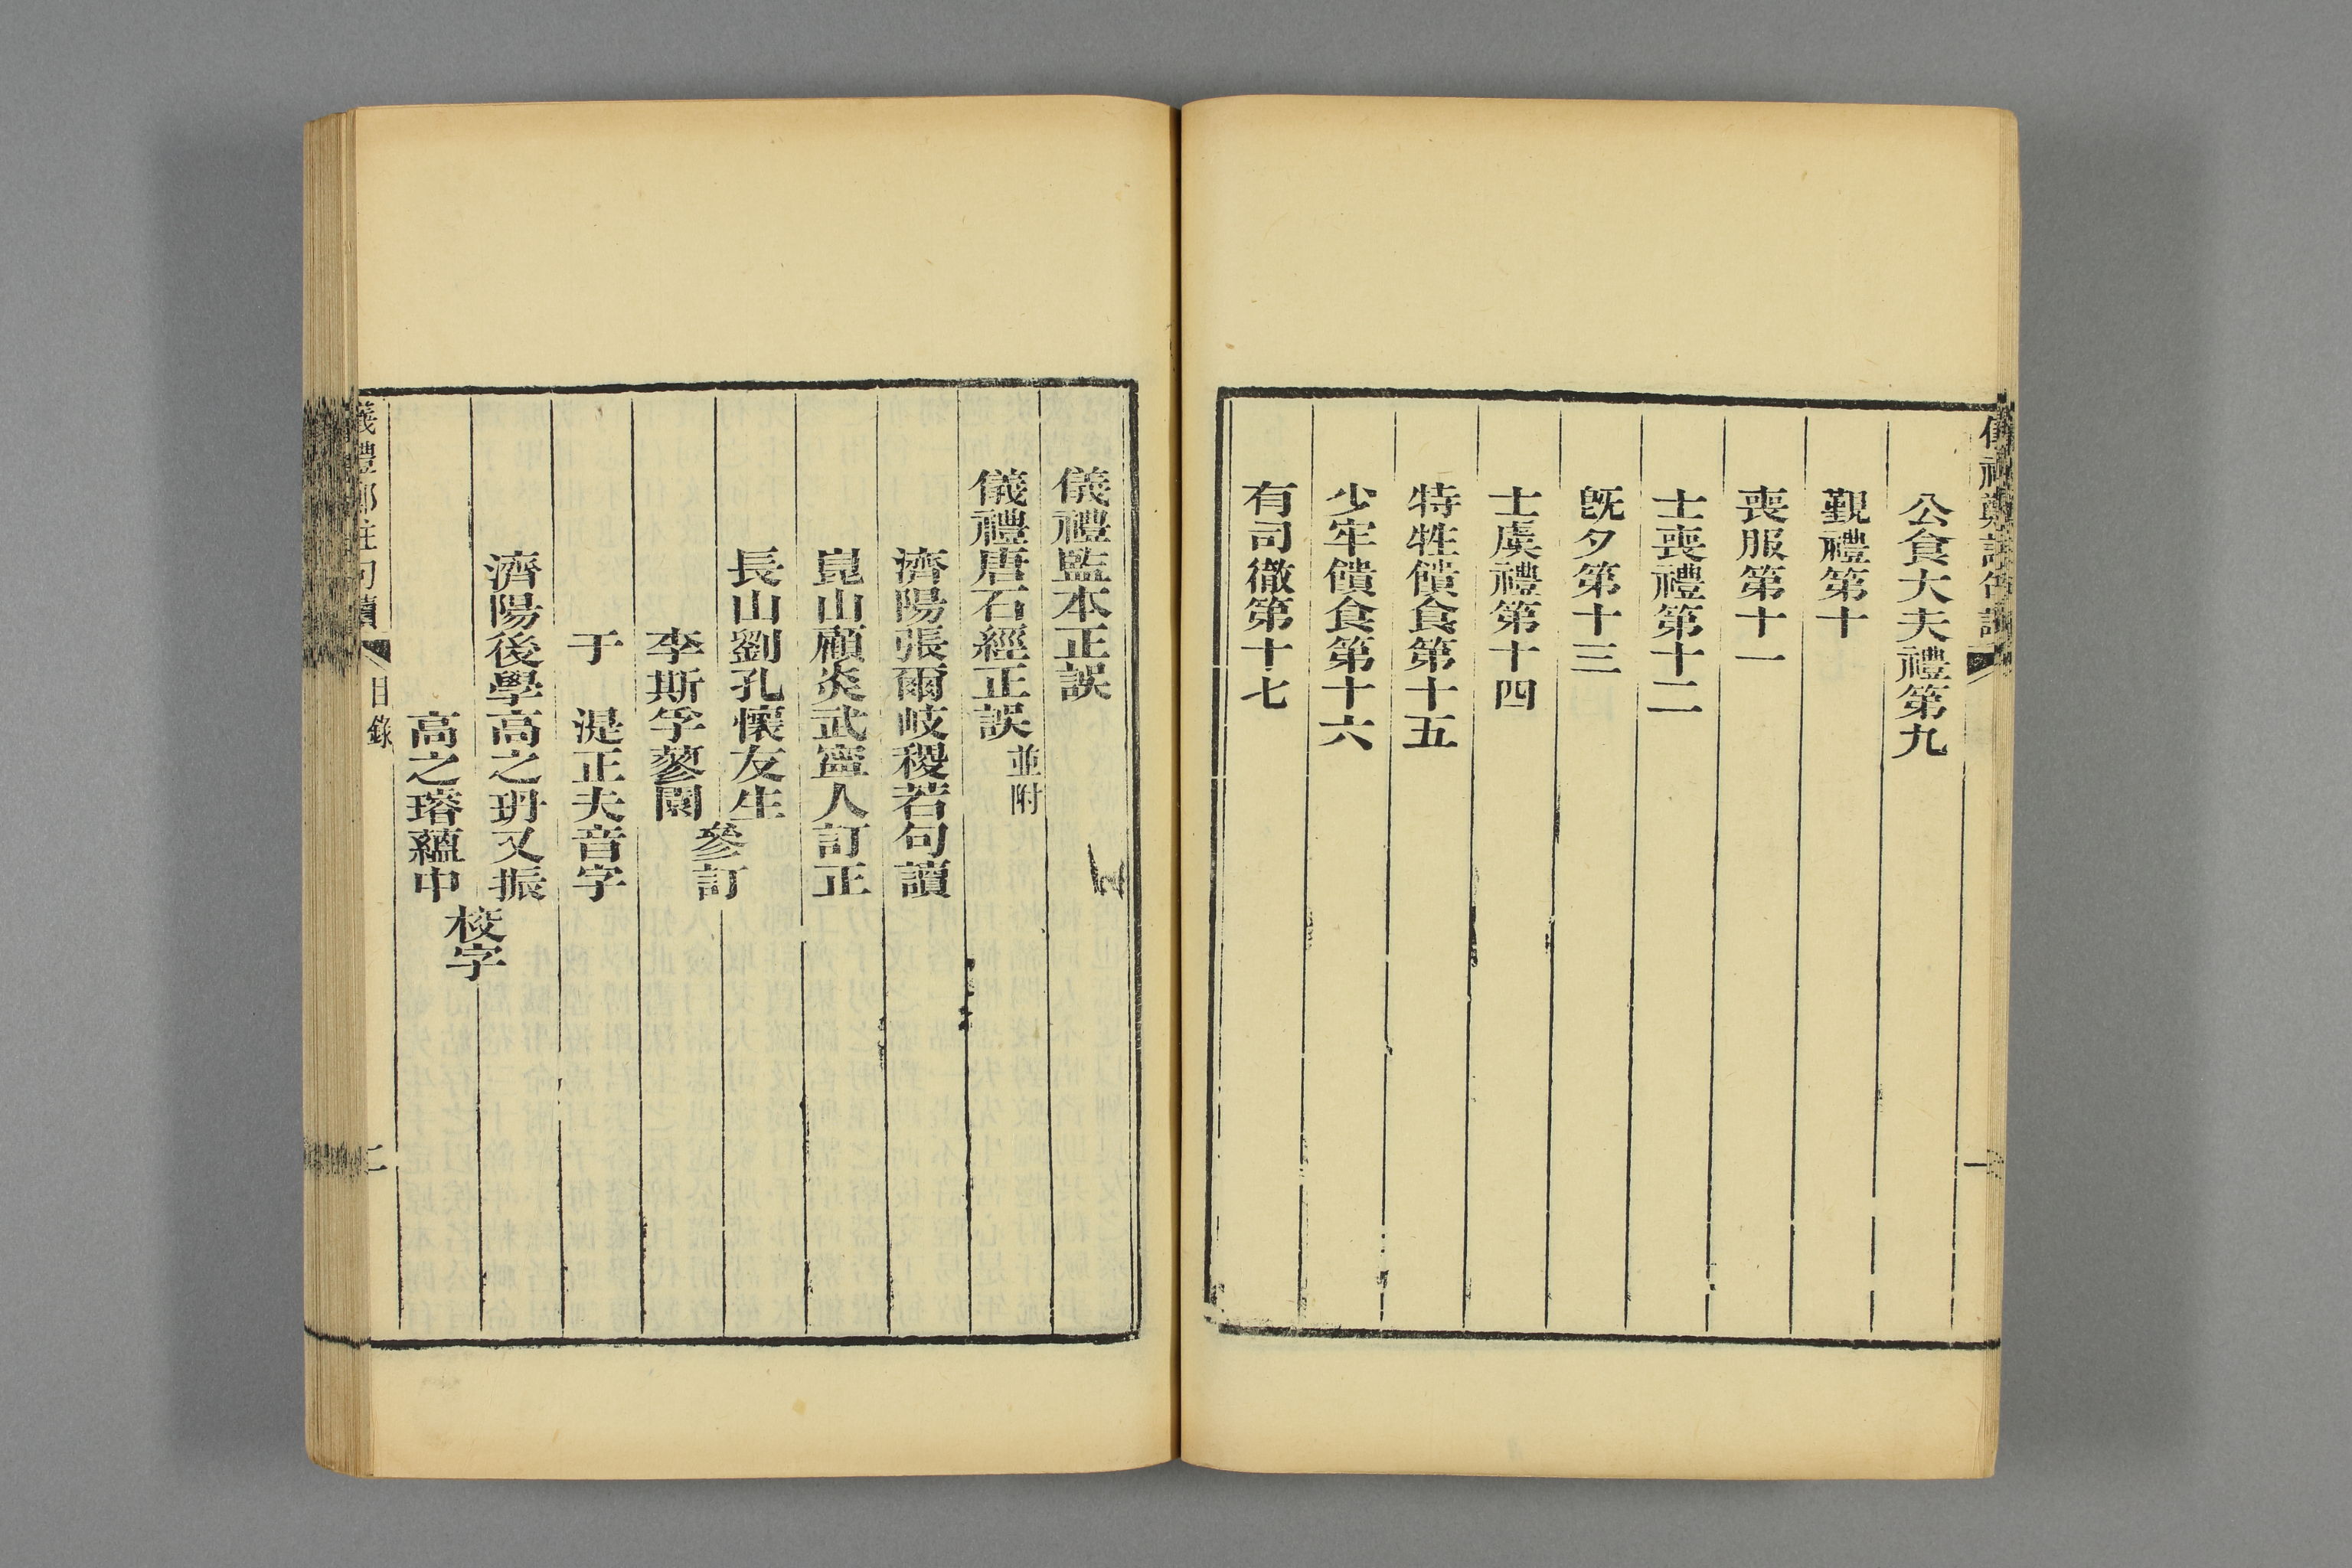 公食大夫禮第九
覲禮第十
喪服第十一
士喪禮第十二
旣夕第十三
士虞禮第十四
特牲饋食第十五
少牢饋食第十六
有司徹第十七
一
儀禮監本正誤
儀禮唐石經正誤並附
濟陽張爾岐稷若句讀
崑山顧炎武寧人訂正
長山劉孔懷友生
李斯孚蓼園
參訂
于 湜正夫音字
濟陽後學高之玥又振
高之璿蘊中
校字
儀禮鄭註句讀 目錄 二